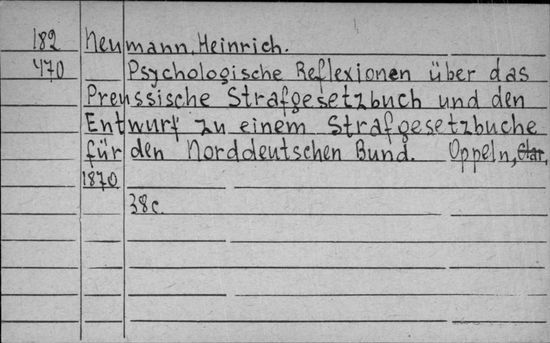 182 Neumann, Heinrich.
470 Psychologische Reflexionen über das
Preussische Strafgesetzbuch und den
Entwurf zu einem Strafgesetzbuche
für den Norddeutschen Bund. Oppeln,
1870
38c.